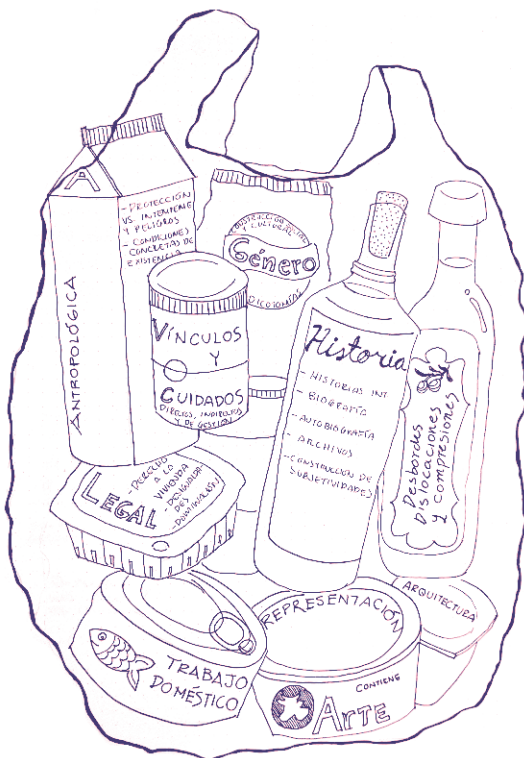 A
ANTROPOLÓGICA
- PROTECCIÓN
VS. INTEMPERIE
Y PELIGROS
- CONDICIONES
CONCRETAS DE
EXISTENCIA
CONSTRUCCIÓN SOCIAL
Y CULTURAL
Género
DICOTOMÍAS
VÍNCULOS
Y
CUIDADOS
DIRECTOS, INDIRECTOS
Y DE GESTIÓN
Historia
- HISTORIAS INT
- BIOGRAFÍA
- AUTOBIOGRAFÍA
- ARCHIVOS
- CONSTRUCCIÓN DE
SUBJETIVIDADES
Desbordes
Dislocaciones
y compresiones
LEGAL
- DERECHO
A LA
VIVIENDA
- DESIGUALDA-
DES
TRABAJO
DOMÉSTICO
REPRESENTACIÓN
CONTIENE
ARTE
ARQUITECTURA